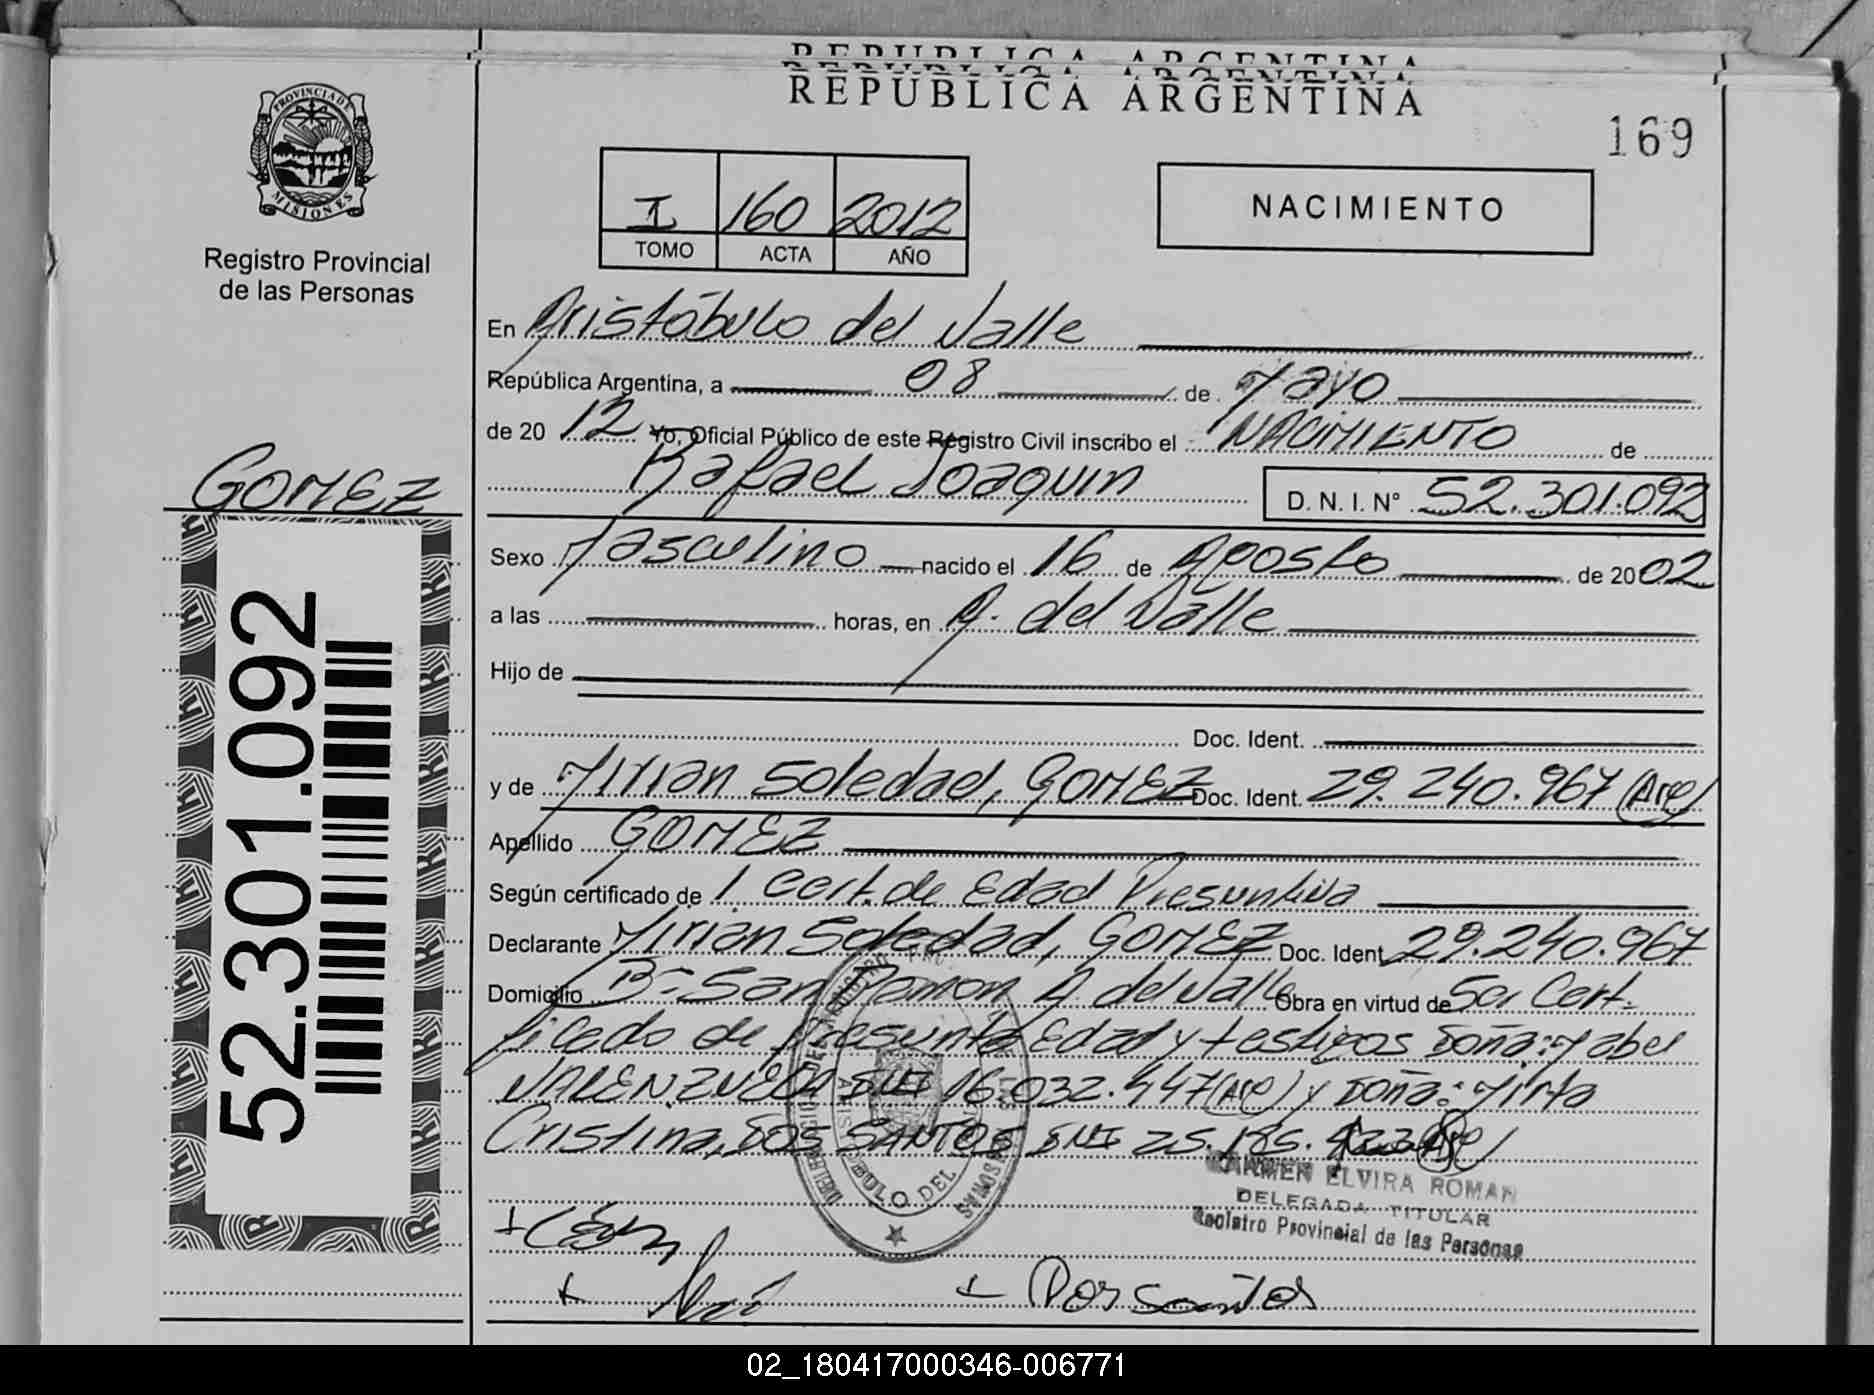 REPUBLICA ARGENTINA
169
PROVINCIA DE MISIONES
Registro Provincial
de las Personas
I 160 2012
TOMO ACTA AÑO
NACIMIENTO
En Aristóbulo del Valle
República Argentina, a 08 de Mayo
de 20 12 Yo, Oficial Público de este Registro Civil inscribo el NACIMIENTO de
Rafael Joaquin D. N. I. N° 52.301.092
GOMEZ
52.301.092
Sexo Masculino nacido el 16 de Agosto de 20 02
a las horas, en A. del Valle
Hijo de
Doc. Ident.
y de Mirian Soledad, GOMEZ Doc. Ident. 29.240.967 (Arg)
Apellido GOMEZ
Según certificado de 1 Cert. de Edad Presuntiva
Declarante Mirian Soledad, GOMEZ Doc. Ident. 29.240.967
Domicilio B= San Ramon A. del Valle Obra en virtud de Cert-
ficado de Presunta Edad y testigos Doña: Mabel
VALENZUELA DNI 16.032.447 (Arg) y Doña: Mirta
Cristina, DOS SANTOS DNI 25.185.
CARMEN ELVIRA ROMAN
DELEGADA TITULAR
Registro Provincial de las Personas
Dos Santos
02_180417000346-006771